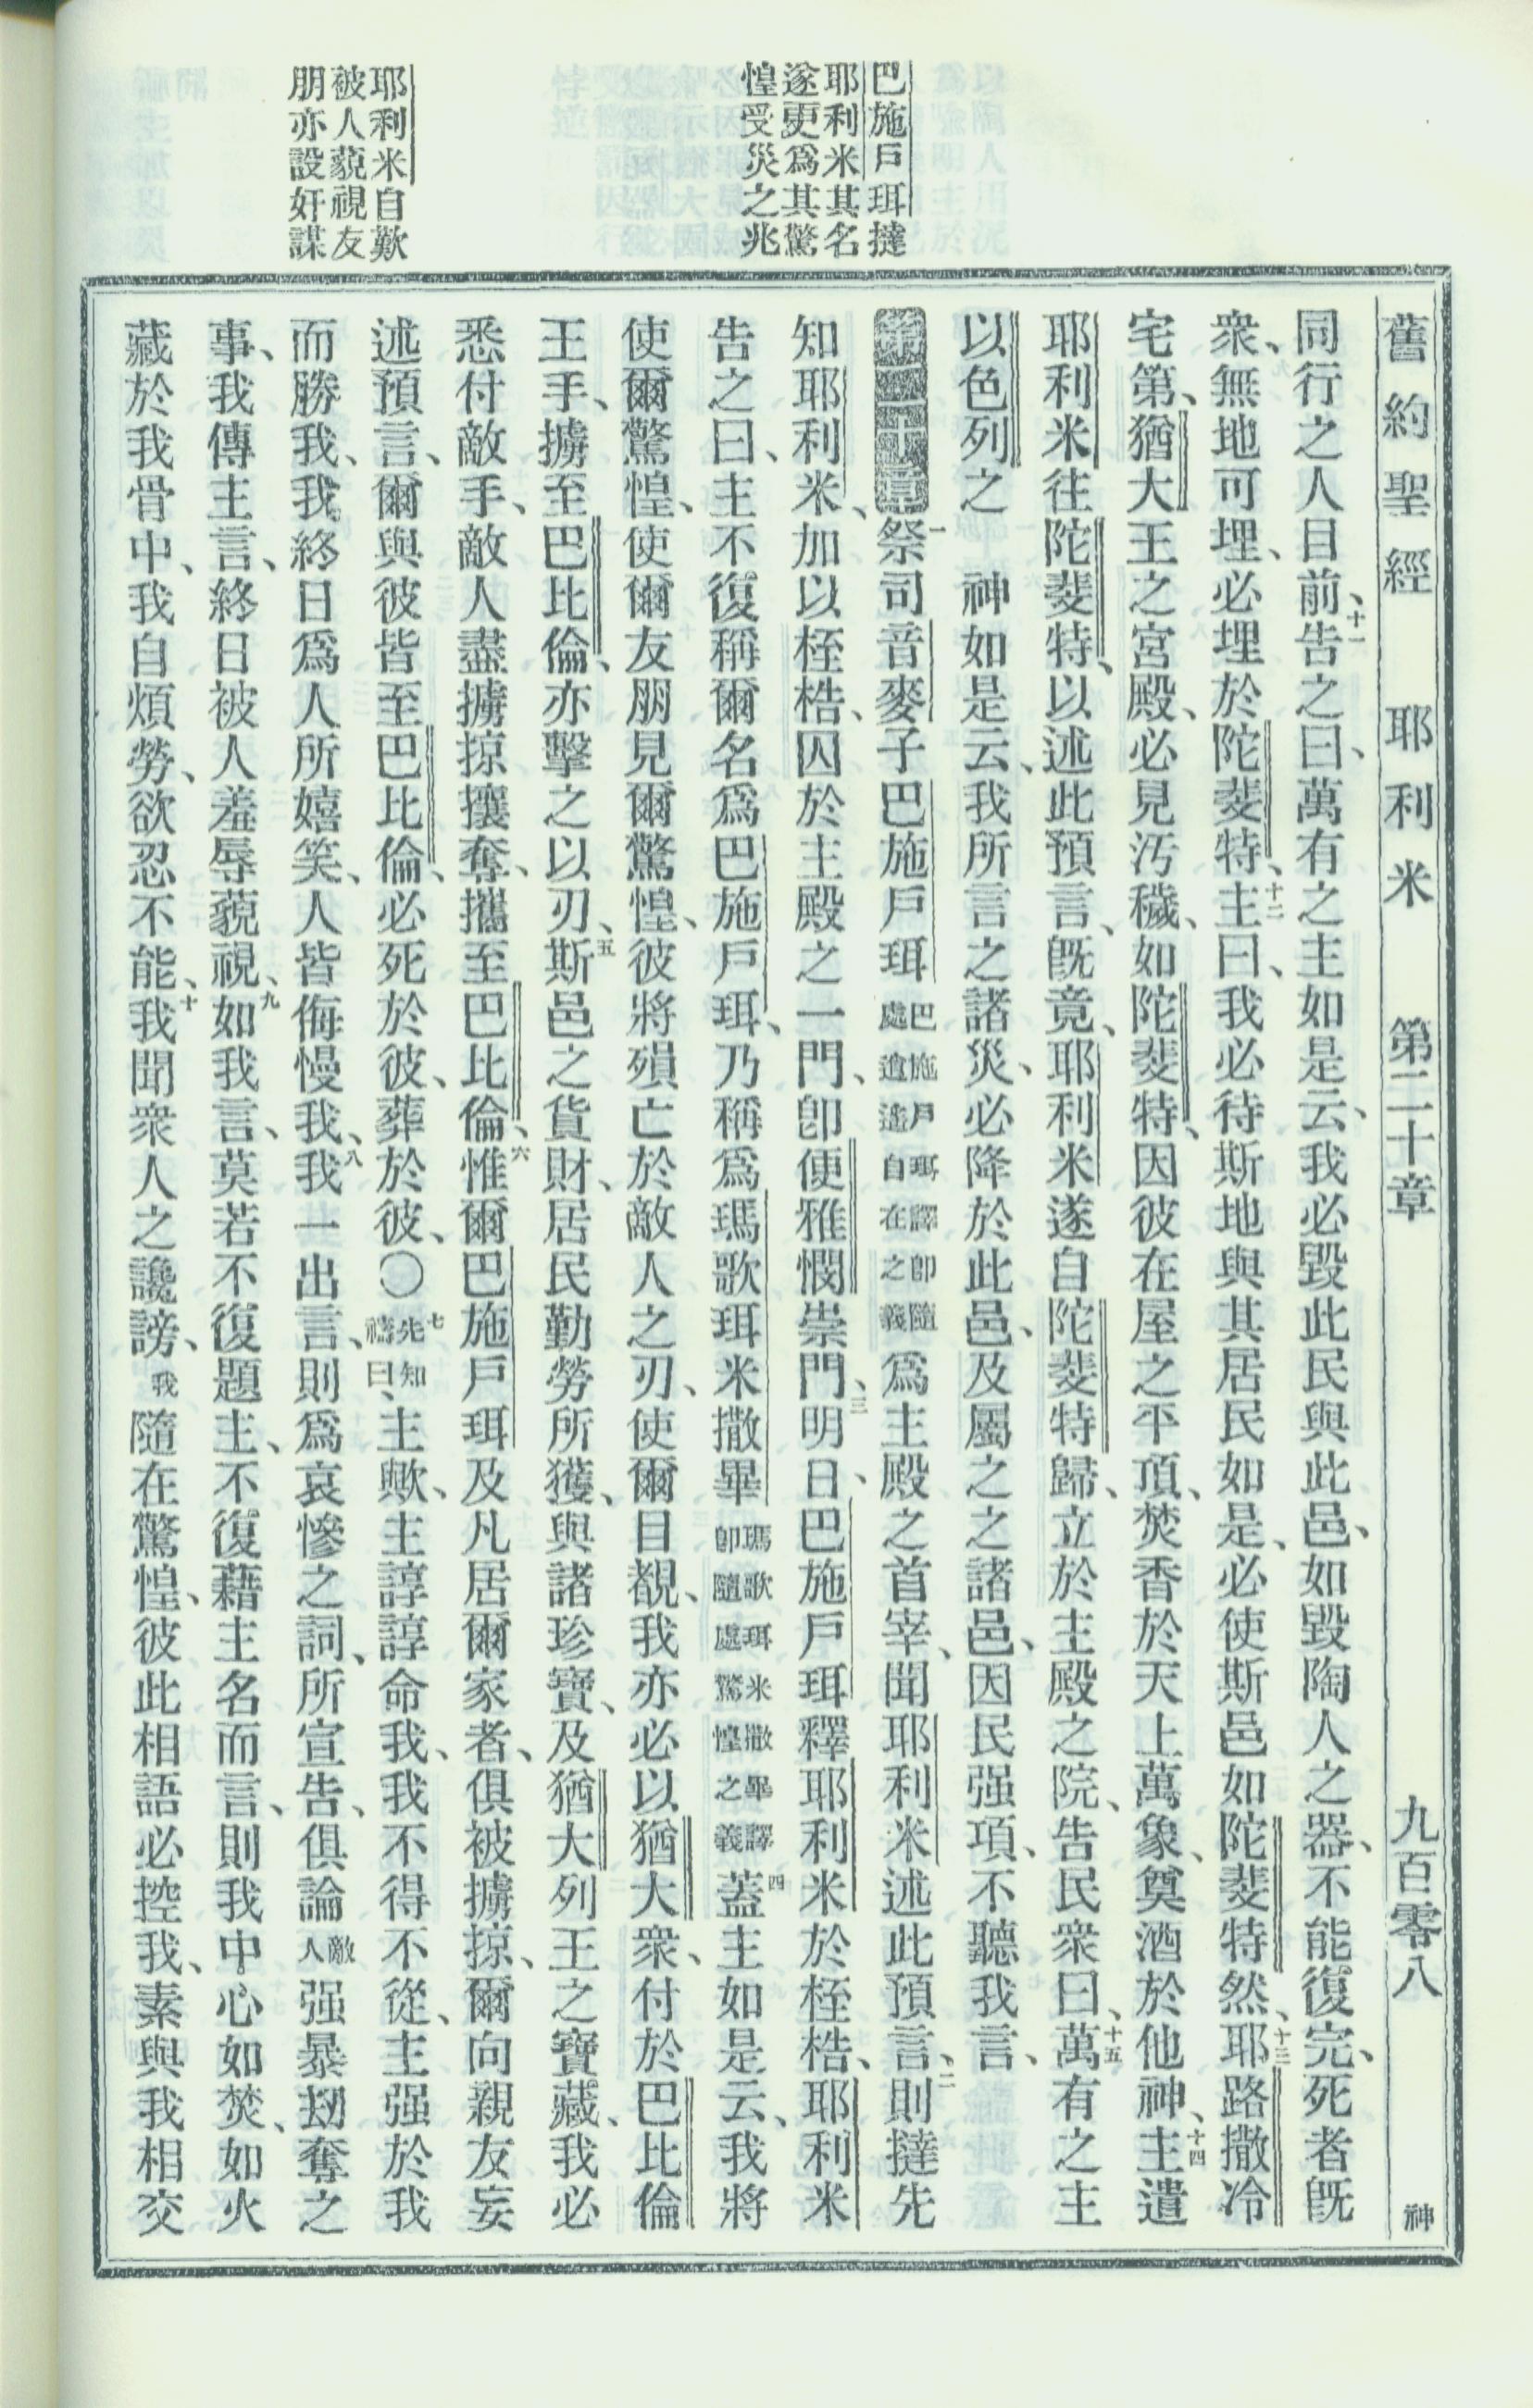 舊約聖經　耶利米　第二十章　九百零八　神
巴施戶珥撻
耶利米其名
遂更爲其驚
惶受災之兆
耶利米自歎
被人藐視友
朋亦設奸謀
同行之人目前、十一告之曰、萬有之主如是云、我必毀此民與此邑、如毀陶人之器、不能復完、死者旣
衆、無地可埋、必埋於陀斐特、十二主曰、我必待斯地與其居民如是、必使斯邑如陀斐特然、十三耶路撒冷
宅第、猶大王之宮殿、必見汚穢、如陀斐特、因彼在屋之平頂、焚香於天上萬象、奠酒於他神、十四主遣
耶利米往陀斐特、以述此預言、旣竟、耶利米遂自陀斐特歸、立於主殿之院、告民衆曰、十五萬有之主
以色列之　神如是云、我所言之諸災、必降於此邑、及屬之之諸邑、因民强項、不聽我言、
第二十章一祭司音麥子巴施戶珥巴施戶珥譯卽隨處逍遙自在之義爲主殿之首宰、聞耶利米述此預言、二則撻先
知耶利米、加以桎梏、囚於主殿之一門、卽便雅憫崇門、三明日、巴施戶珥釋耶利米於桎梏、耶利米
告之曰、主不復稱爾名爲巴施戶珥、乃稱爲瑪歌珥米撒畢瑪歌珥米撒畢譯卽隨處驚惶之義四蓋主如是云、我將
使爾驚惶、使爾友朋見爾驚惶、彼將殞亡於敵人之刃、使爾目覩、我亦必以猶大衆、付於巴比倫
王手、擄至巴比倫、亦擊之以刃、五斯邑之貨財、居民勤勞所獲、與諸珍寶、及猶大列王之寶藏、我必
悉付敵手、敵人盡擄掠攘奪、攜至巴比倫、六惟爾巴施戶珥及凡居爾家者、俱被擄掠、爾向親友妄
述預言、爾與彼皆至巴比倫、必死於彼、葬於彼、〇七先知禱曰、主歟、主諄諄命我、我不得不從、主强於我
而勝我、我終日爲人所嬉笑、人皆侮慢我、八我一出言、則爲哀慘之詞、所宣告、俱論敵人强暴刼奪之
事、我傳主言、終日被人羞辱藐視、九如我言、莫若不復題主、不復藉主名而言、則我中心如焚、如火
藏於我骨中、我自煩勞、欲忍不能、十我聞衆人之讒謗、我隨在驚惶、彼此相語必控我、素與我相交